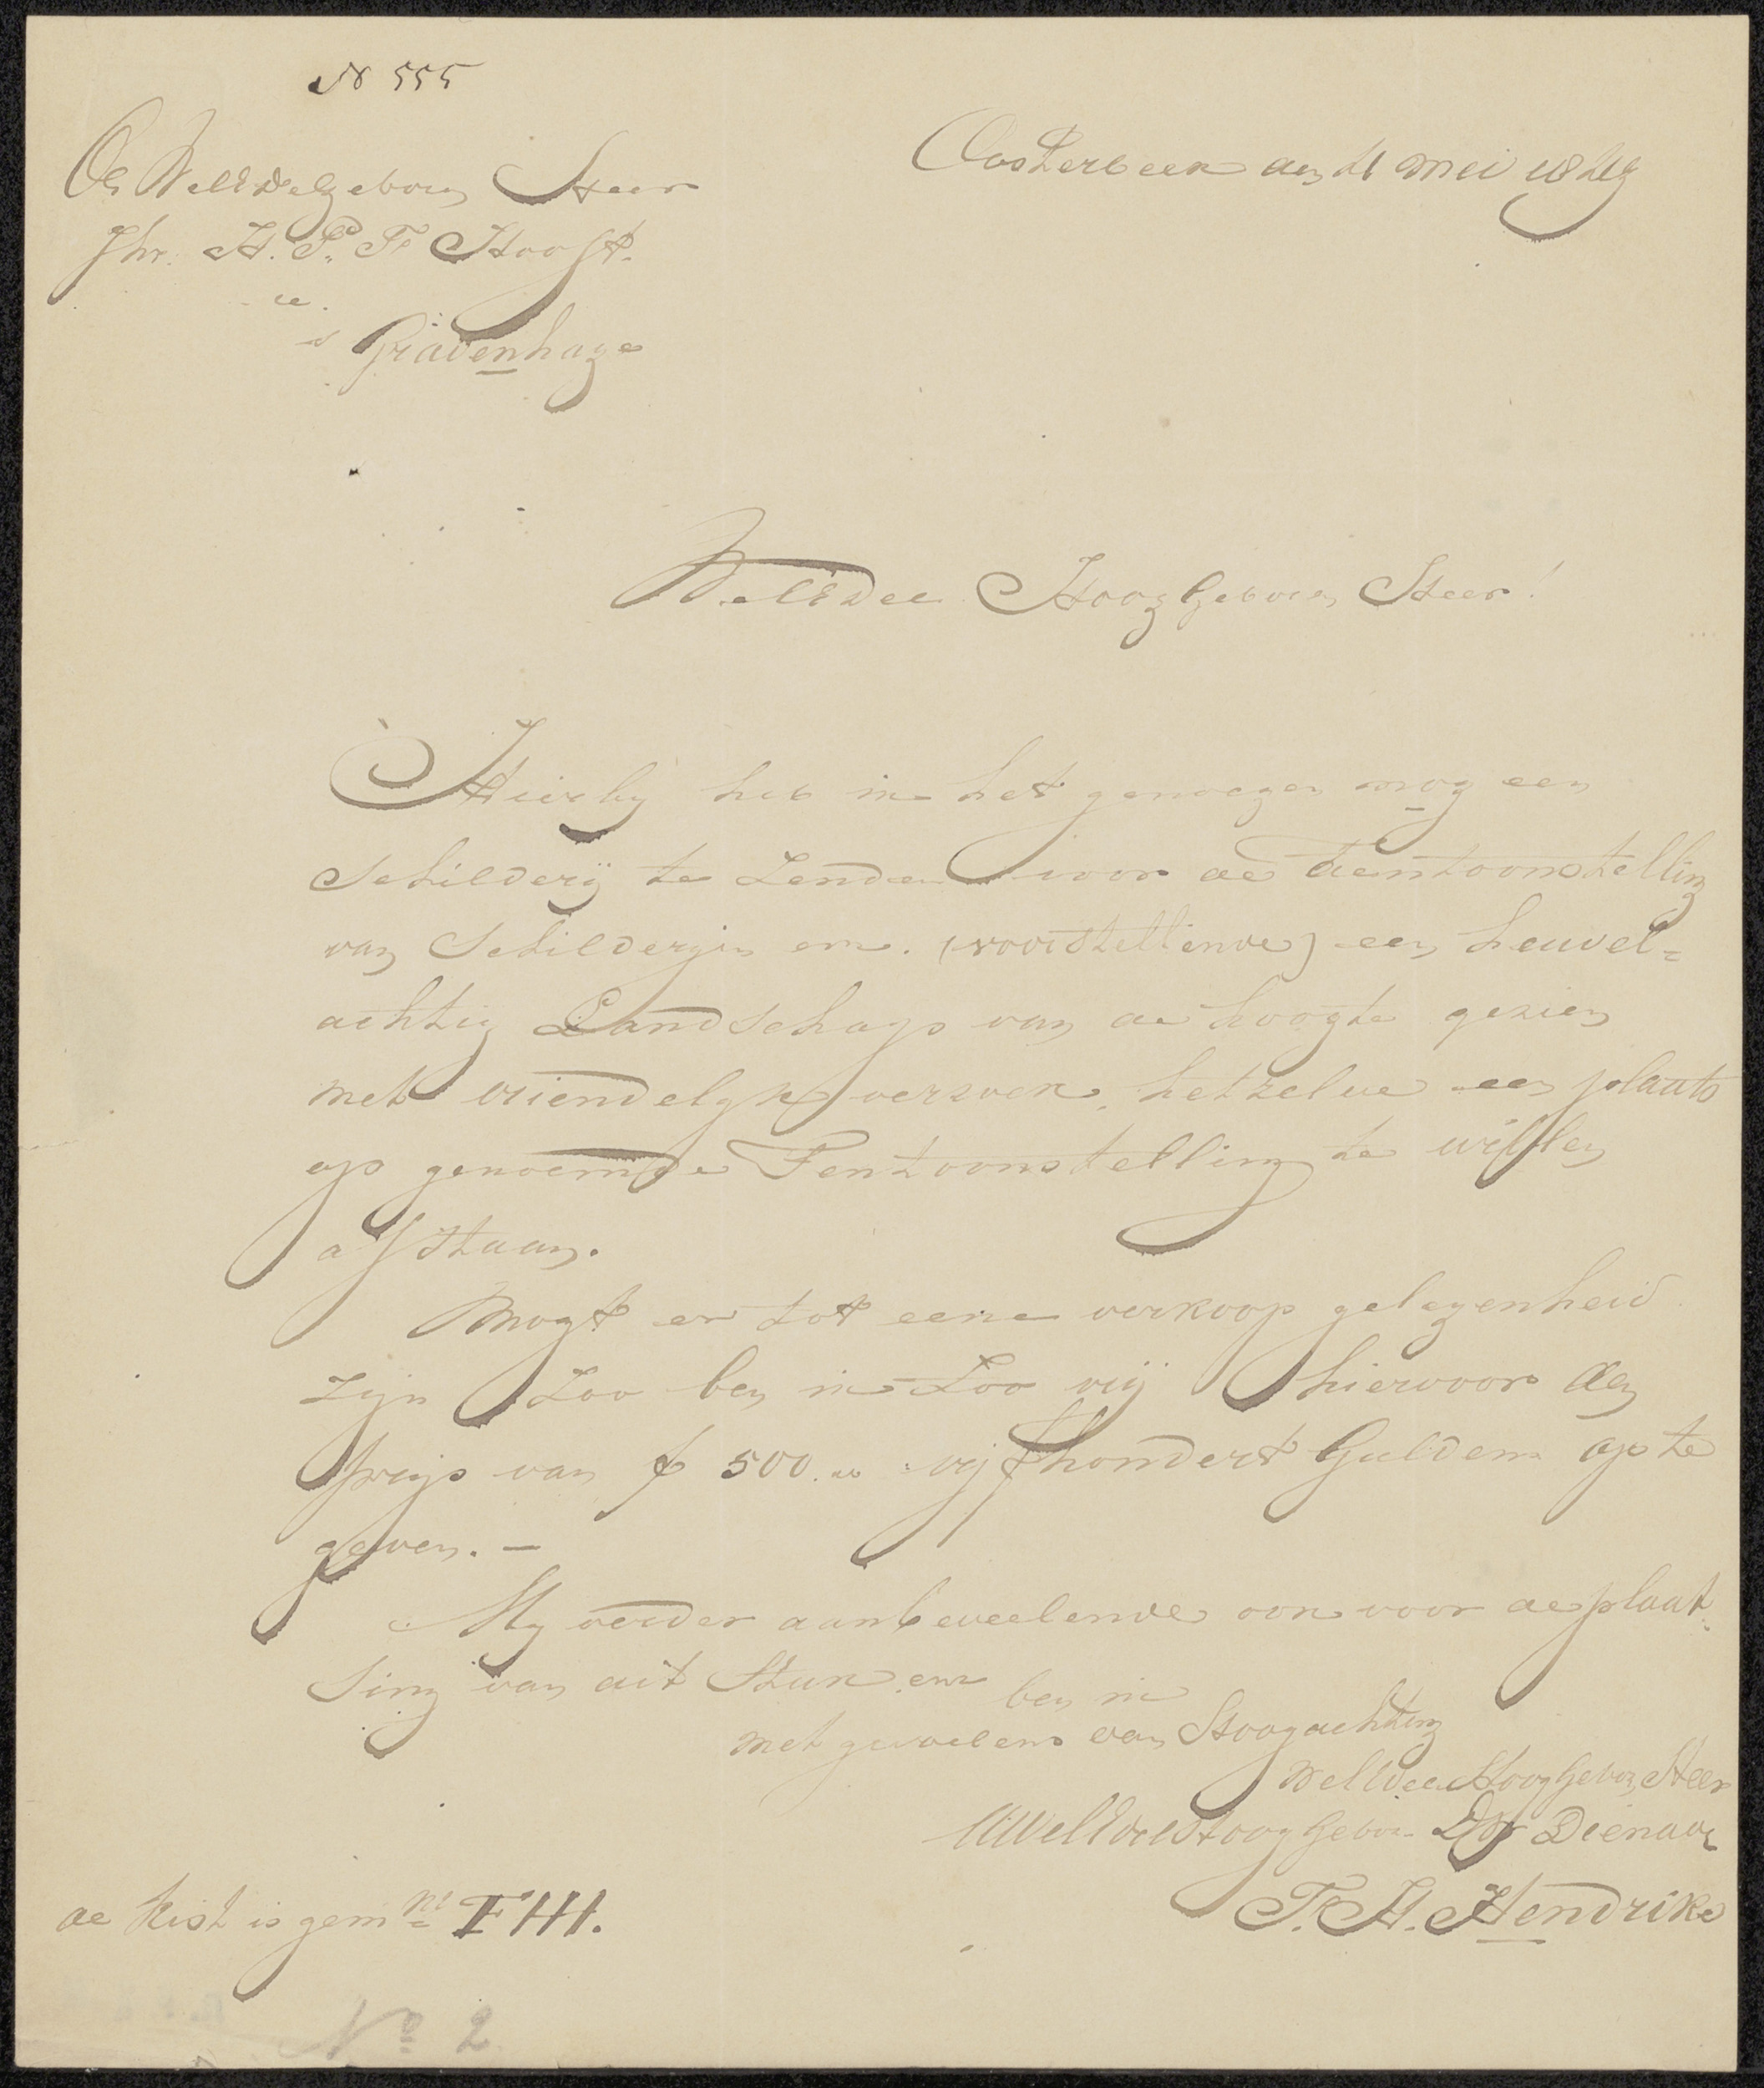 N 555
Oosterbeek den 21 mei 18
De WelEdelgeboren Heer
Jhr. H. P. F. Hooft.
te
s Gravenhage
WelEdele HoogGeboren Heer!
Hierby heb ik het genoegen nog een
Schilderij te Zenden voor de Tentoonstelling
van Schilderyen enz. (voorstellende) een heuvel=
achtig Landschap van de hoogte gezien
met vriendelyk verzoek, hetzelve een plaats
op genoemde Tentoonstelling te willen
afstaan.
Mogt er tot eene verkoop gelegenheid
zijn Zoo ben ik Zoo vrij hiervoor den
prijs van f 500.- vijfhondert Gulden op te
geven. —
My verder aanbeveelende ook voor de plaat-
sing van dit Stuk en ben ik
met gevoelens van Hoogachting
WelEdele HoogGeboren Heer
UWelEdeleHoogGeboren DW Dienaar
F. H. Hendriks
de kist is gemkt FHH.
No 2